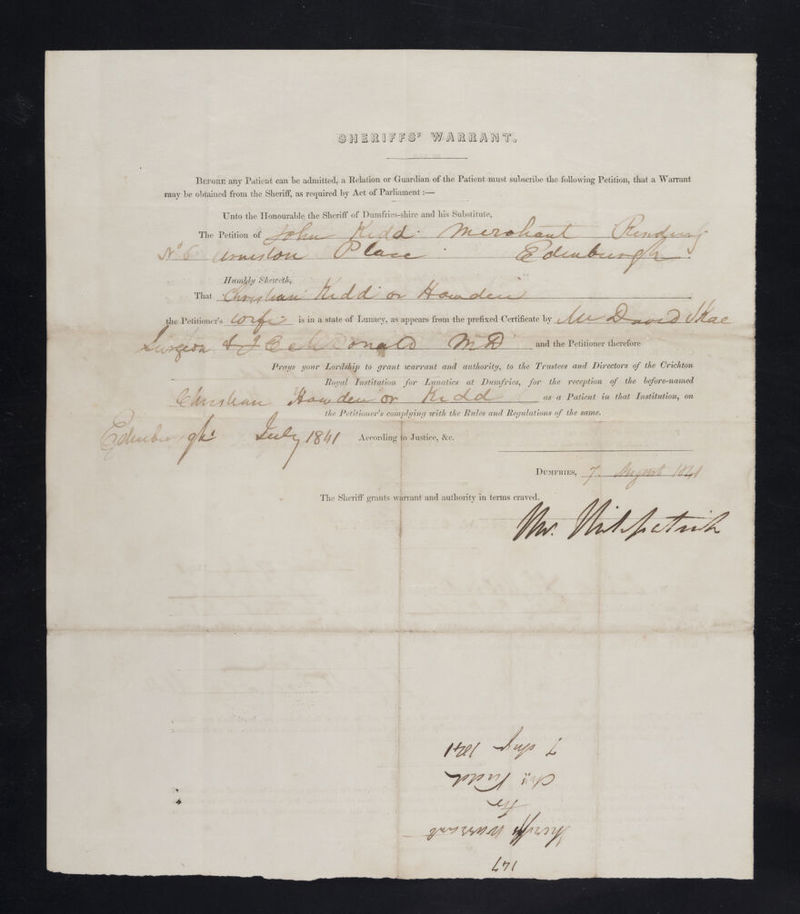 SHERIFFS' WARRANT.
BEFORE any Patient can be admitted, a Relation or Guardian of the Patient must subscribe the following Petition, that a Warrant
may be obtained from the Sheriff, as required by Act of Parliament :—
Unto the Honourable the Sheriff of Dumfries-shire and his Substitute,
The Petition of John Kidd Merchant Residing
No 6 Arniston Place Edinburgh
Humbly Sheweth,
That Christian Kidd or Howden
the Petitioner's wife is in a state of Lunacy, as appears from the prefixed Certificate by Mr David Skae
Surgeon & J C McDonald MD and the Petitioner therefore
Prays your Lordship to grant warrant and authority, to the Trustees and Directors of the Crichton
Royal Institution for Lunatics at Dumfries, for the reception of the before-named
Christian Howden or Kidd as a Patient in that Institution, on
the Petitioner's complying with the Rules and Regulations of the same.
Edinburgh July 1841 According to Justice, &c.
DUMFRIES, 7. August 1841
The Sheriff grants warrant and authority in terms craved.
Kirkpatrick
7 Aug 1841
Chn Kidd
for
Sheriff Warrant
147